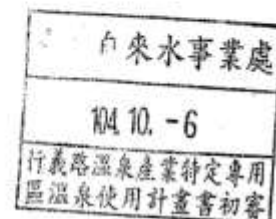 自來水事業處
104.10.-6
行義路溫泉產業特定專用
區溫泉使用計畫書初審